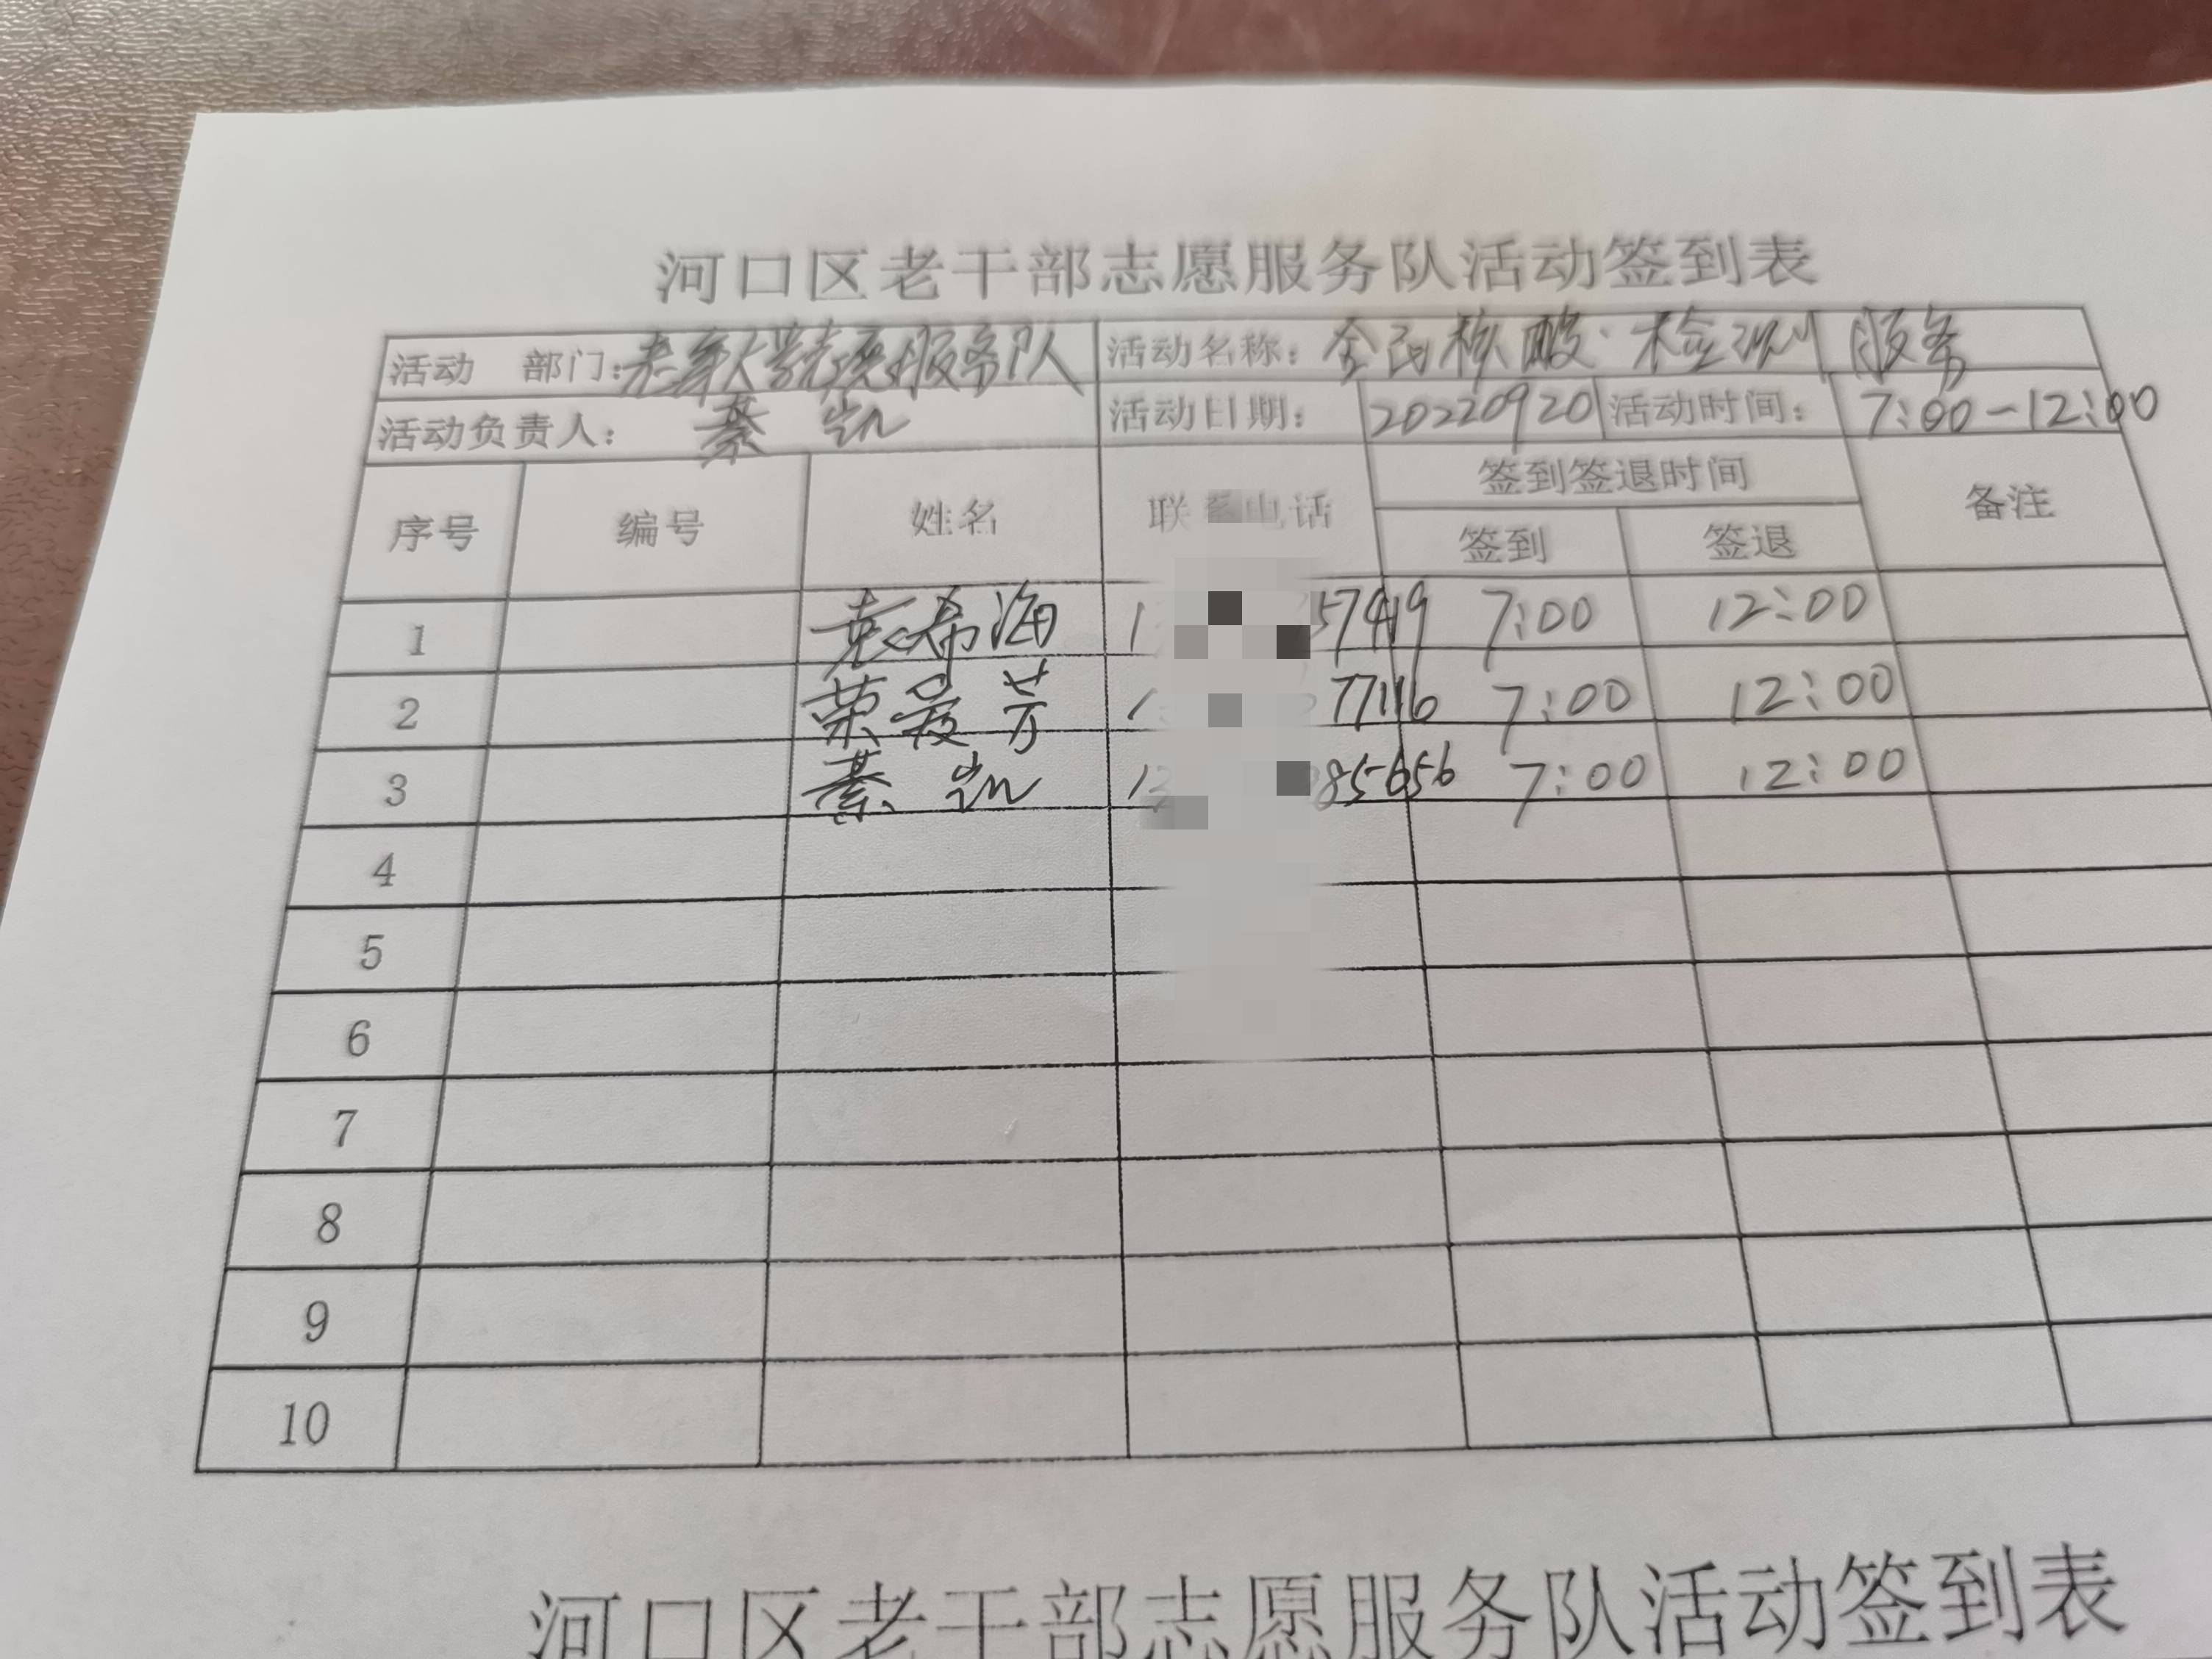 河口区老干部志愿服务队活动签到表
活动 部门：老年大学志愿服务队 活动名称：全民核酸检测服务
活动负责人：綦凯 活动日期：20220920 活动时间：7:00-12:00
序号 编号 姓名 联系电话 签到签退时间 备注
签到 签退
1 袁希海 1 57419 7:00 12:00
2 荣爱芳 1 77116 7:00 12:00
3 綦凯 1 85656 7:00 12:00
4
5
6
7
8
9
10
河口区老干部志愿服务队活动签到表